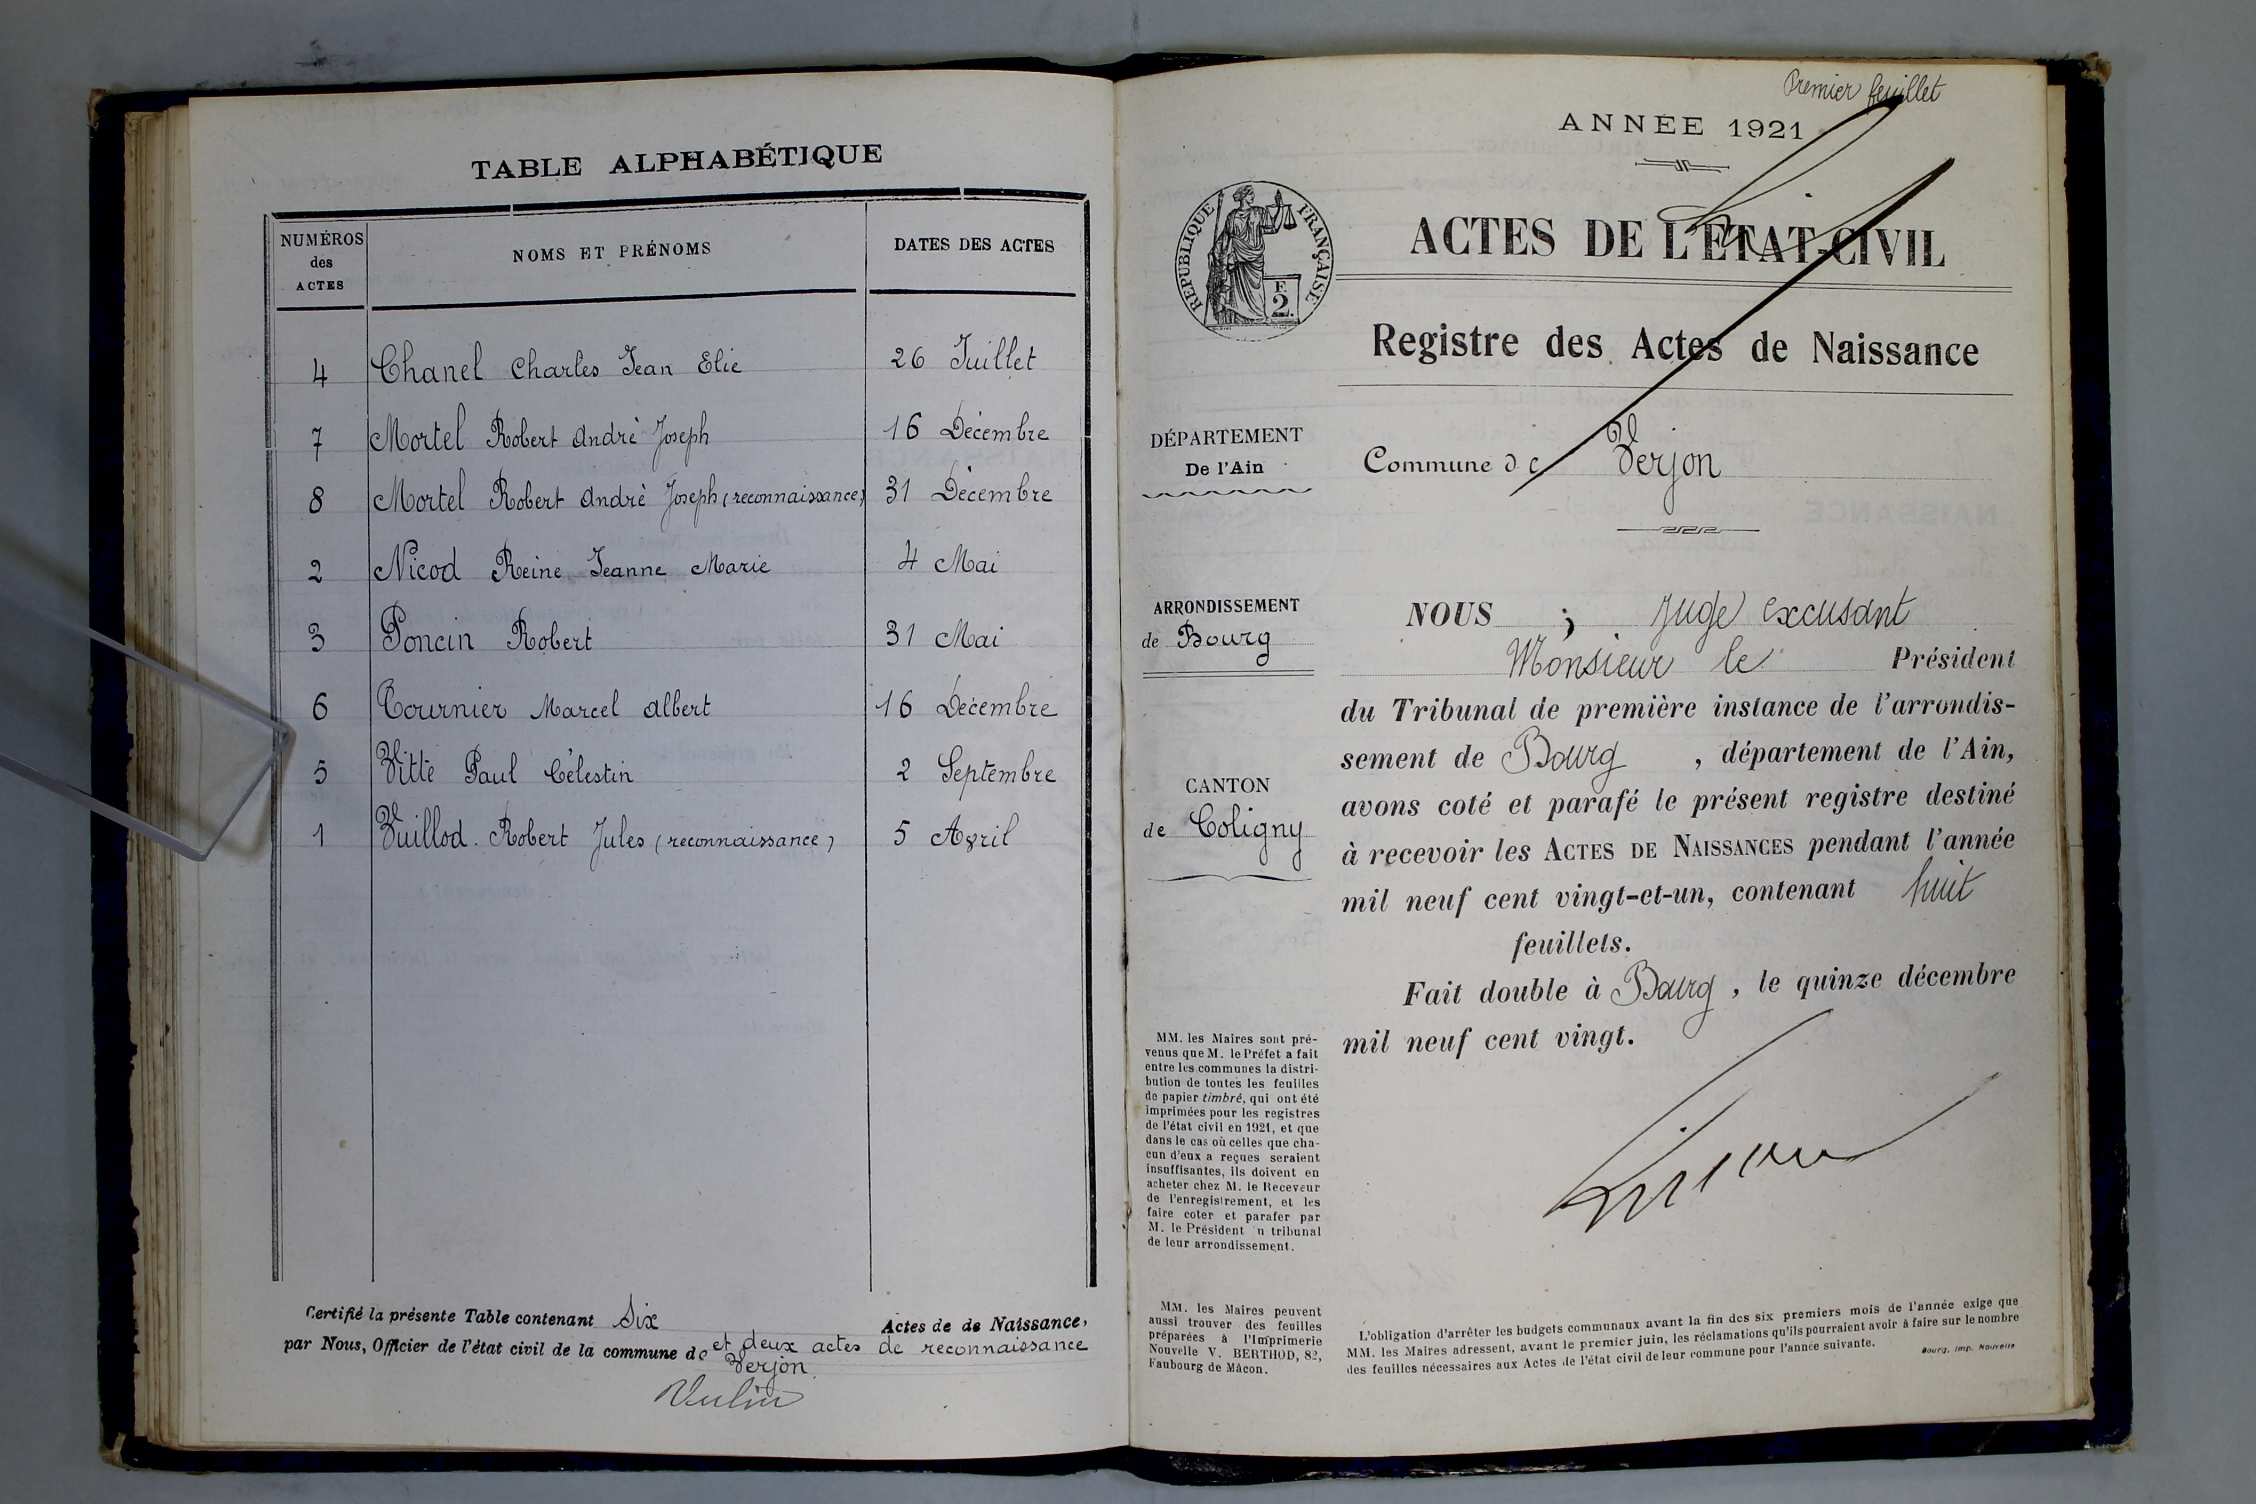 TABLE ALPHABÉTIQUE
NUMÉROS des ACTES NOMS ET PRÉNOMS DATES DES ACTES
4 Chanel Charles Jean Elie 26 Juillet
7 Mortel Robert Andrè Joseph 16 Décembre
8 Mortel Robert Andrè Joseph (reconnaissance) 31 Décembre
2 Nicod Reine Jeanne Marie 4 Mai
3 Poncin Robert 31 Mai
6 Tournier Marcel Albert 16 Décembre
5 Vitte Paul Célestin 2 Septembre
1 Vuillod. Robert Jules (reconnaissance) 5 Avril
Certifié la présente Table contenant Six Actes de de Naissance,
et deux actes de reconnaissance
par Nous, Officier de l'état civil de la commune de Verjon
Premier feuillet
ANNÉE 1921
RÉPUBLIQUE FRANÇAISE
F.
2.
ACTES DE L'ÉTAT-CIVIL
Registre des Actes de Naissance
DÉPARTEMENT
De l'Ain
Commune de Verjon
ARRONDISSEMENT
de Bourg
CANTON
de Coligny
NOUS ; Juge excusant
Monsieur le Président
du Tribunal de première instance de l'arrondis-
sement de Bourg , département de l'Ain,
avons coté et parafé le présent registre destiné
à recevoir les ACTES DE NAISSANCES pendant l'année
mil neuf cent vingt-et-un, contenant huit
feuillets.
Fait double à Bourg , le quinze décembre
mil neuf cent vingt.
MM. les Maires sont pré-
venus que M. le Préfet a fait
entre les communes la distri-
bution de toutes les feuilles
de papier timbré, qui ont été
imprimées pour les registres
de l'état civil en 1921, et que
dans le cas où celles que cha-
cun d'eux a reçues seraient
insuffisantes, ils doivent en
acheter chez M. le Receveur
de l'enregistrement, et les
faire coter et parafer par
M. le Président u tribunal
de leur arrondissement.
MM. les Maires peuvent
aussi trouver des feuilles
préparées à l'Imprimerie
Nouvelle V. BERTHOD, 82,
Faubourg de Mâcon.
L'obligation d'arrêter les budgets communaux avant la fin des six premiers mois de l'année exige que
MM. les Maires adressent, avant le premier juin, les réclamations qu'ils pourraient avoir à faire sur le nombre
des feuilles nécessaires aux Actes de l'état civil de leur commune pour l'année suivante.
Bourg, Imp. Nouvelle